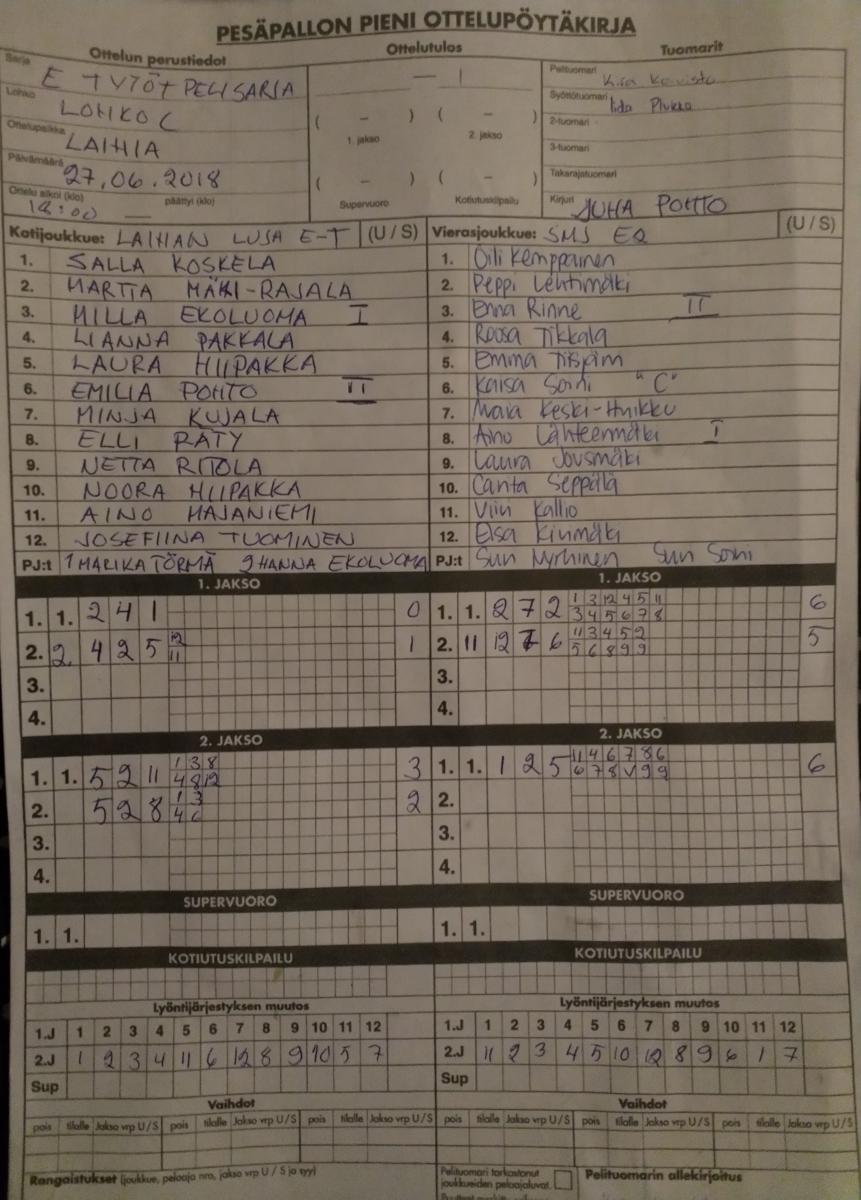 PESÄPALLON PIENI OTTELUPÖYTÄKIRJA
Ottelun perustiedot Ottelutulos Tuomarit
Sarja E TYTÖT PELISARJA — 1 Pelituomari
Lohko LOHKO C ( – ) ( – ) Syöttötuomari Iida Plukka
Ottelupaikka LAIHIA 1. jakso 2. jakso 2-tuomari
Päivämäärä 27.06.2018 3-tuomari
Ottelu alkoi (klo) 18:00 päättyi (klo) ( – ) ( – ) Takarajatuomari
Supervuoro Kotiutuskilpailu Kirjuri JUHA POHTO
Kotijoukkue: LAIHIAN LUJA E-T (U / S) Vierasjoukkue: SMJ (U / S)
1. SALLA KOSKELA 1. Oili Kemppainen
2. MARTTA MÄKI-RAJALA 2. Peppi Lehtimäki
3. MILLA EKOLUOMA I 3. Enna Rinne II
4. LIANNA PAKKALA 4. Roosa Tikkala
5. LAURA HIIPAKKA 5. Emma
6. EMILIA POHTO II 6. Kaisa Soini "C"
7. MINJA KUJALA 7. Keski-Hynikku
8. ELLI RÄTY 8. Aino Lähteenmäki I
9. NETTA RITOLA 9. Laura Jousmäki
10. NOORA HIIPAKKA 10. Canta Seppälä
11. AINO HAJANIEMI 11. Kallio
12. JOSEFIINA TUOMINEN 12. Elsa Kivimäki
PJ:t 1 MARIKA TÖRMÄ 2 HANNA EKOLUOMA PJ:t Suvi Nyrhinen Suvi Soini
1. JAKSO 1. JAKSO
1. 1. 2 4 1 0 1. 1. 2 7 2 1 3 12 4 5 11 6
3 4 5 6 7 8
2. 2. 4 2 5 12 1 2. 11 12 7 6 11 3 4 5 2 5
11 5 6 8 9 9
3. 3.
4. 4.
2. JAKSO 2. JAKSO
1. 1. 5 2 11 1 3 8 3 1. 1. 1 2 5 11 4 6 7 8 6 6
4 8 12 6 7 8 V 9 9
2. 5 2 8 1 3 2 2.
4 6
3. 3.
4. 4.
SUPERVUORO SUPERVUORO
1. 1. 1. 1.
KOTIUTUSKILPAILU KOTIUTUSKILPAILU
Lyöntijärjestyksen muutos Lyöntijärjestyksen muutos
1.J 1 2 3 4 5 6 7 8 9 10 11 12 1.J 1 2 3 4 5 6 7 8 9 10 11 12
2.J 1 2 3 4 11 6 12 8 9 10 5 7 2.J 11 2 3 4 5 10 12 8 9 6 1 7
Sup Sup
Vaihdot Vaihdot
pois tilalle Jakso vrp U / S pois tilalle Jakso vrp U / S pois tilalle Jakso vrp U / S pois tilalle Jakso vrp U / S pois tilalle Jakso vrp U / S pois tilalle Jakso vrp U / S
Rangaistukset (joukkue, pelaaja nro, jakso vrp U / S ja syy) Pelituomari tarkastanut joukkueiden pelaajaluvat. Pelituomarin allekirjoitus